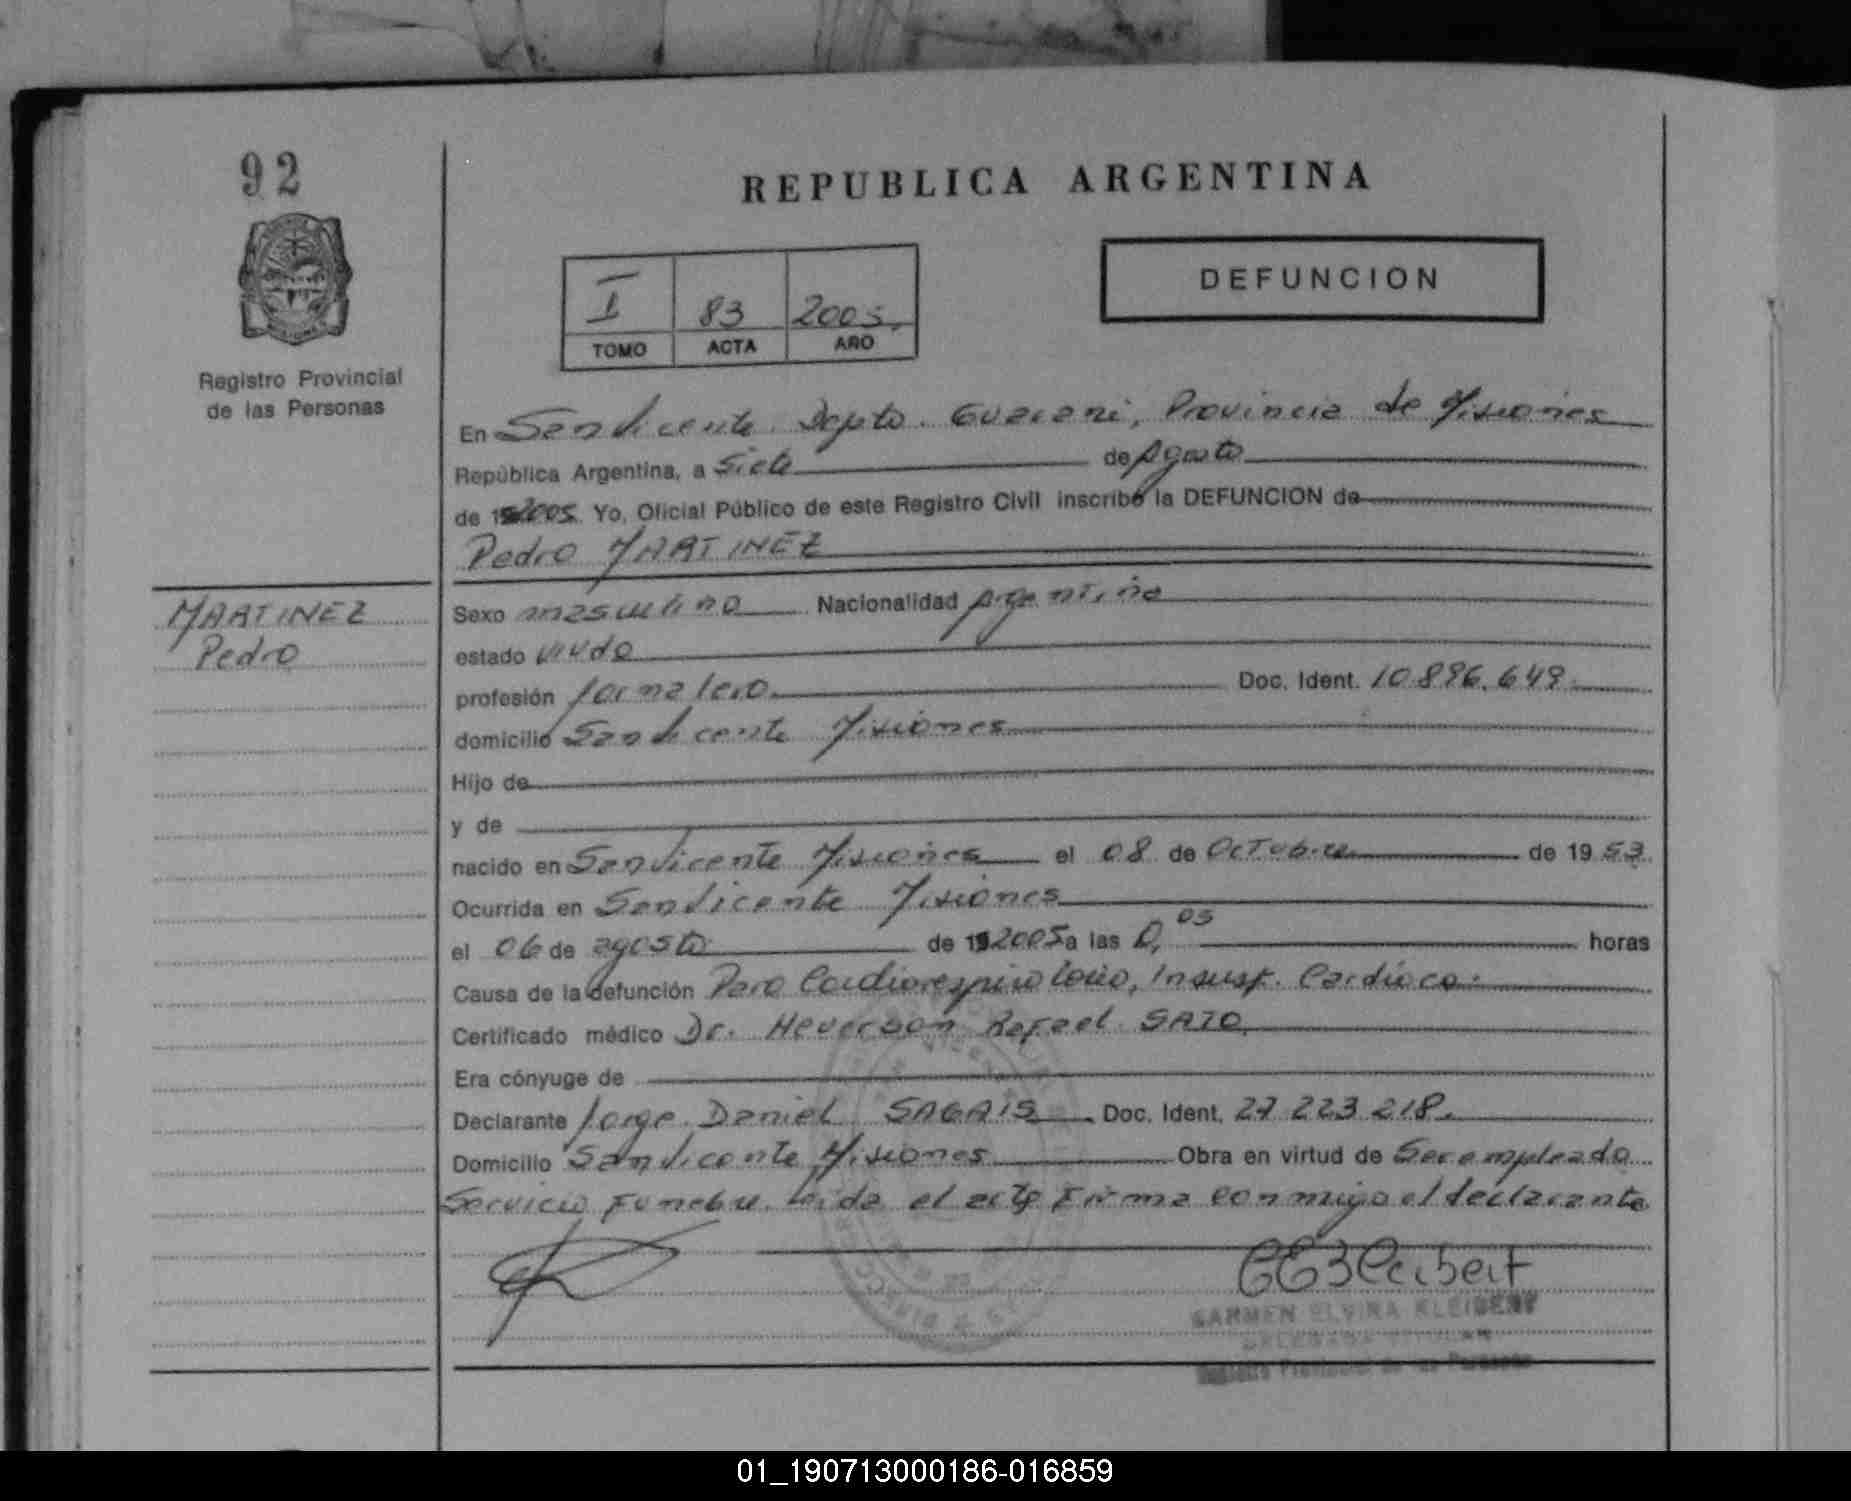 92
REPUBLICA ARGENTINA
DEFUNCION
I 83 2005.
TOMO ACTA AÑO
Registro Provincial
de las Personas
En San Vicente Depto. Guarani, Provincia de Misiones
República Argentina, a Siete de Agosto
de 2005. Yo, Oficial Público de este Registro Civil inscribo la DEFUNCION de
Pedro MARTINEZ
MARTINEZ
Pedro
Sexo masculino Nacionalidad Argentina
estado viudo
profesión Jornalero. Doc. Ident. 10.896.649.
domicilio San Vicente Misiones
Hijo de
y de
nacido en San Vicente Misiones el 08 de Octubre de 1953.
Ocurrida en San Vicente Misiones
el 06 de agosto de 2005 a las 0,05 horas
Causa de la defunción Paro Cardiorespiratorio, Insusf. Cardiaca.
Certificado médico Dr. Heverson Rafael SAZO.
Era cónyuge de
Declarante Jorge Daniel Doc. Ident. 27 223 218.
Domicilio San Vicente Misiones Obra en virtud de Ser empleado
Servicio Funebre. Leida el acta Firma conmigo el declarante
CARMEN ELVIRA KLEIBERT
DELEGADA TITULAR
Registro Provincial de las Personas
01_190713000186-016859